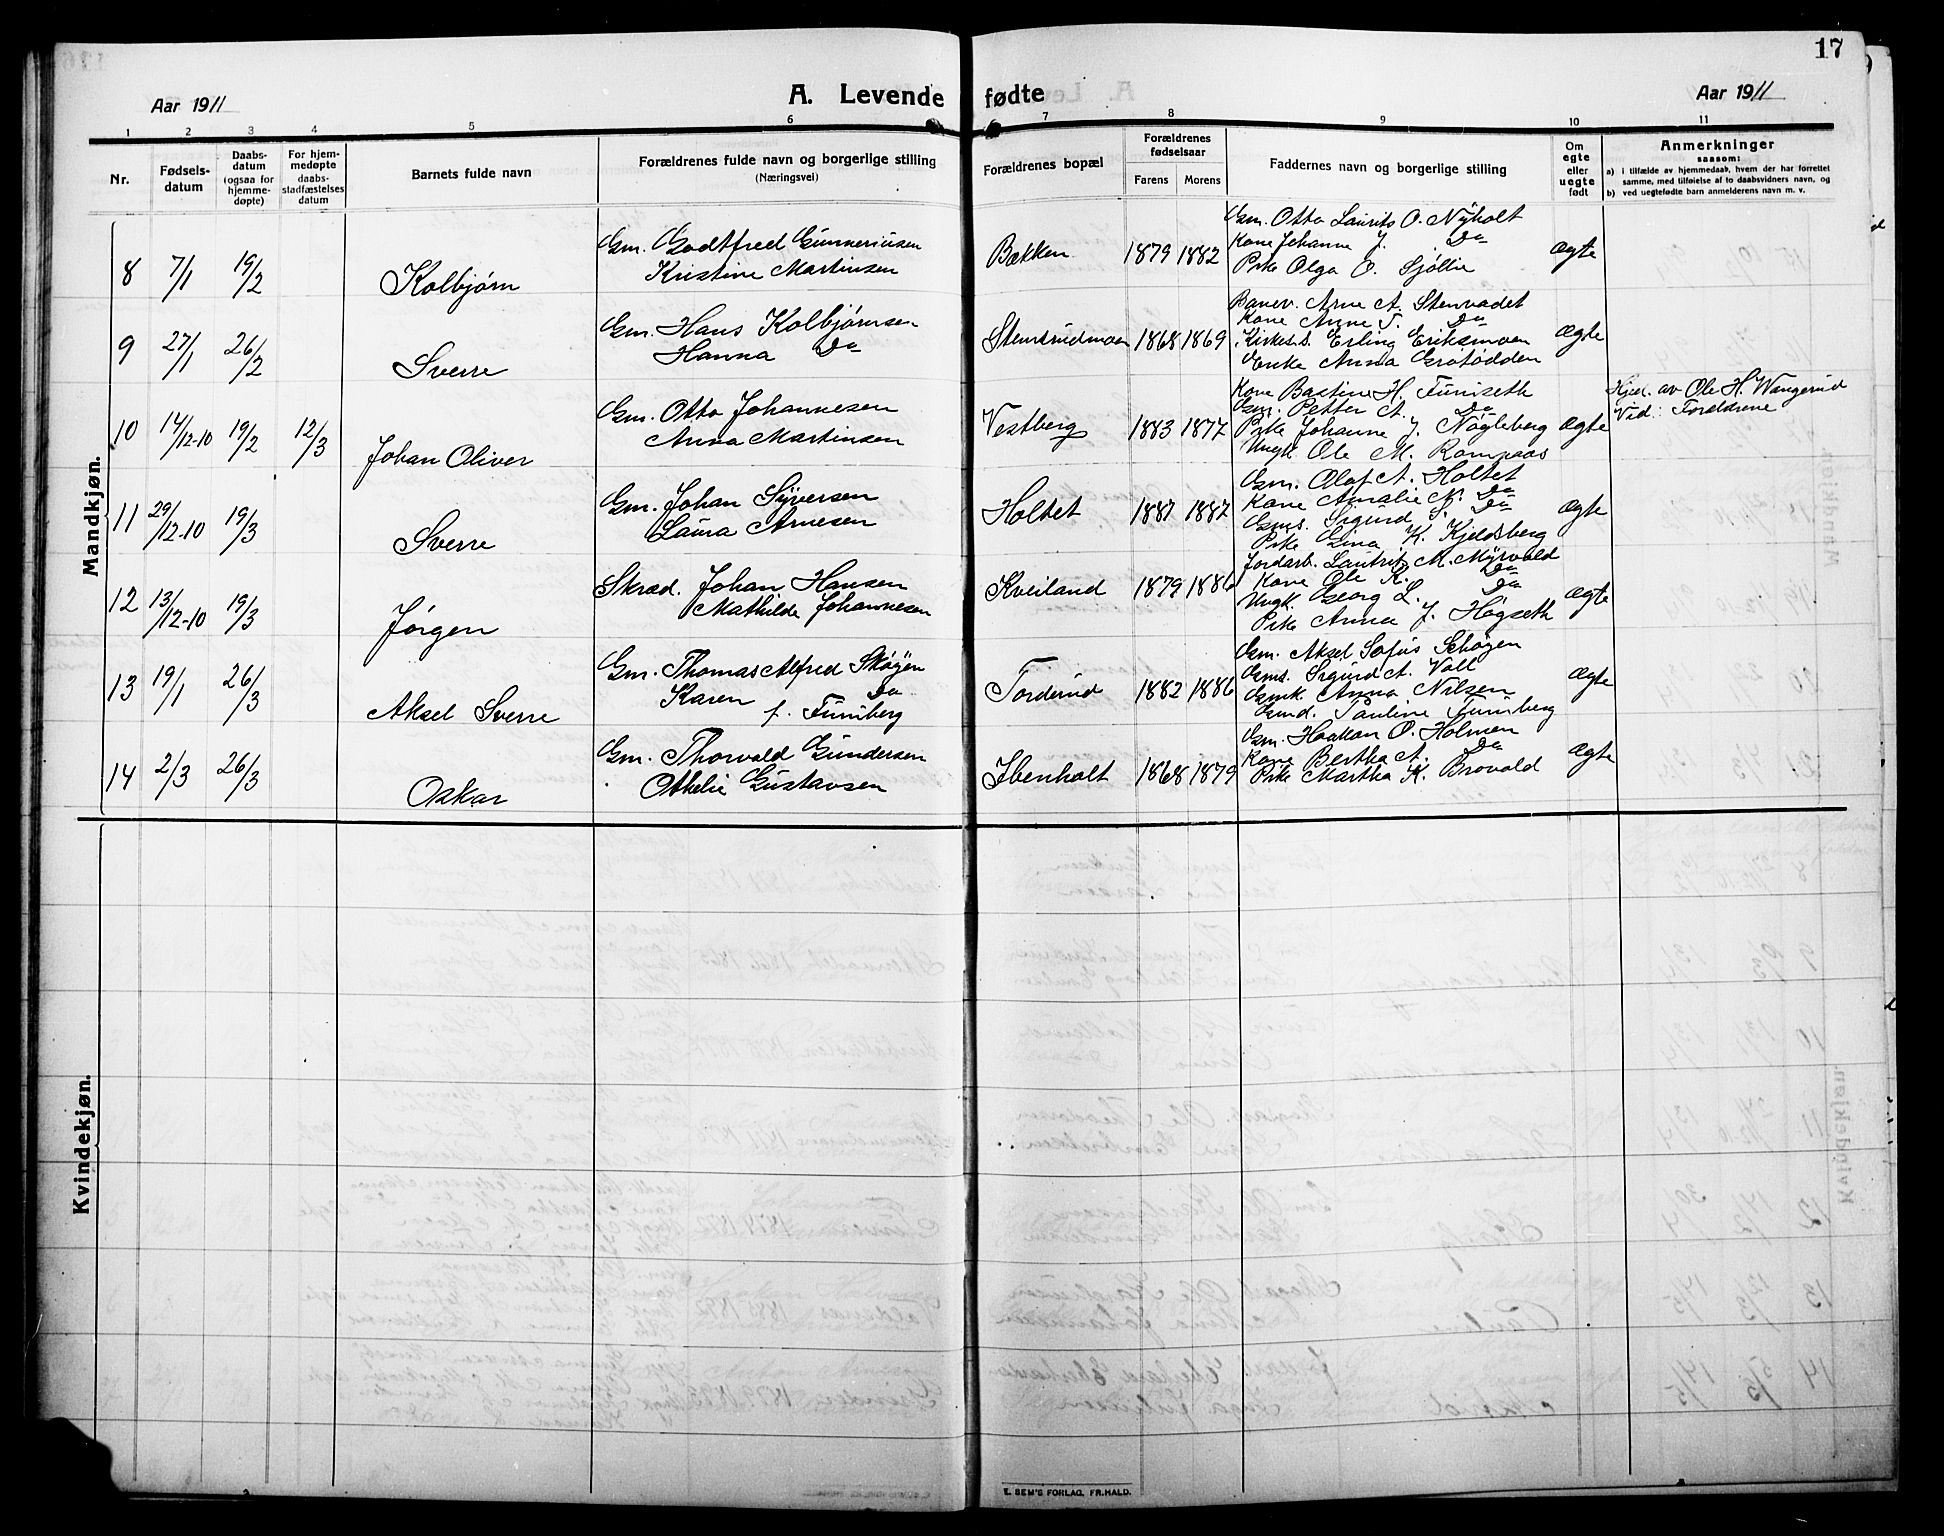 17
Aar 1911
A. Levende fødte
Aar 1911
1 2 3 4 5 6 7 8 9 10 11
Nr.
Fødsels-
datum
Daabs-
datum
(ogsaa for
hjemme-
døpte)
For hjem-
medøpte
daabs-
stadfæstelses
datum
Barnets fulde navn
Forældrenes fulde navn og borgerlige stilling
(Næringsvei)
Forældrenes bopæl
Forældrenes
fødselsaar
Farens Morens
Faddernes navn og borgerlige stilling
Om
egte
eller
uegte
født
Anmerkninger
saasom:
a) i tilfælde av hjemmedaab, hvem der har forrettet
samme, med tilføielse af to daabsvidners navn, og
b) ved uegtefødte barn anmelderens navn m. v.
Mandkjøn.
8 7/1 19/2 Kolbjørn
Gm. Godtfred Gunneriusen
Kristine Martinsen
Bakken 1879 1882
Gm. Otto Laurits O. Nyholt
Kone Johanne J. Do
Pike Olga O. Sjøllie
Ægte
9 27/1 26/2 Sverre
Gm. Hans Kolbjørnsen
Hanna Do
Stensrudmoen 1868 1869
Banev. Arne A. Stenvadet
Kone Anne T. Do
Kirkes. Erling Eriksmoen
Enke Anna Grøtødden
Ægte
10 14/12-10 19/2 12/3 Johan Oliver
Gm. Otto Johannesen
Anna Martinsen
Vestberg 1883 1877
Kone Bastine H. Furuseth
Gm. Petter A. Do
Pike Johanne J. Nøgleberg
Ungk. Ole M. Rompaas
Ægte
Hjed. av Ole H. Wangerud
Vid: Foreldrene
11 29/12-10 19/3 Sverre
Gm. Johan Syversen
Laura Arnesen
Holtet 1887 1887
Gm. Olaf A. Holtet
Kone Amalie N. Do
Gms. Sigurd S. Do
Pike Gina K. Kjeldsberg
Ægte
12 13/12-10 19/3 Jørgen
Skræd. Johan Hansen
Mathilde Johannesen
Kveiland 1879 1886
Jordarb. Lauritz M. Myrvold
Kone Ole K. Do
Ungk. Georg L. Do
Pike Anna J. Høgseth
Ægte
13 19/1 26/3 Aksel Sverre
Gm. Thomas Alfred Skøyen
Karen Do
f. Furuberg
Torderud 1882 1886
Gm. Aksel Sofus Schøyen
Gms. Sigurd A. Voll
Gmk Anna Nilsen
Gmd. Pauline Furuberg
Ægte
14 2/3 26/3 Oskar
Gm. Thorvald Gundersen
Othelie Gustavsen
Ibenholt 1868 1879
Gm. Haakon O. Holmen
Kone Bertha A. Do
Pike Martha K. Brovold
Ægte
Kvindekjøn.
E. SEM'S FORLAG, FR.HALD.